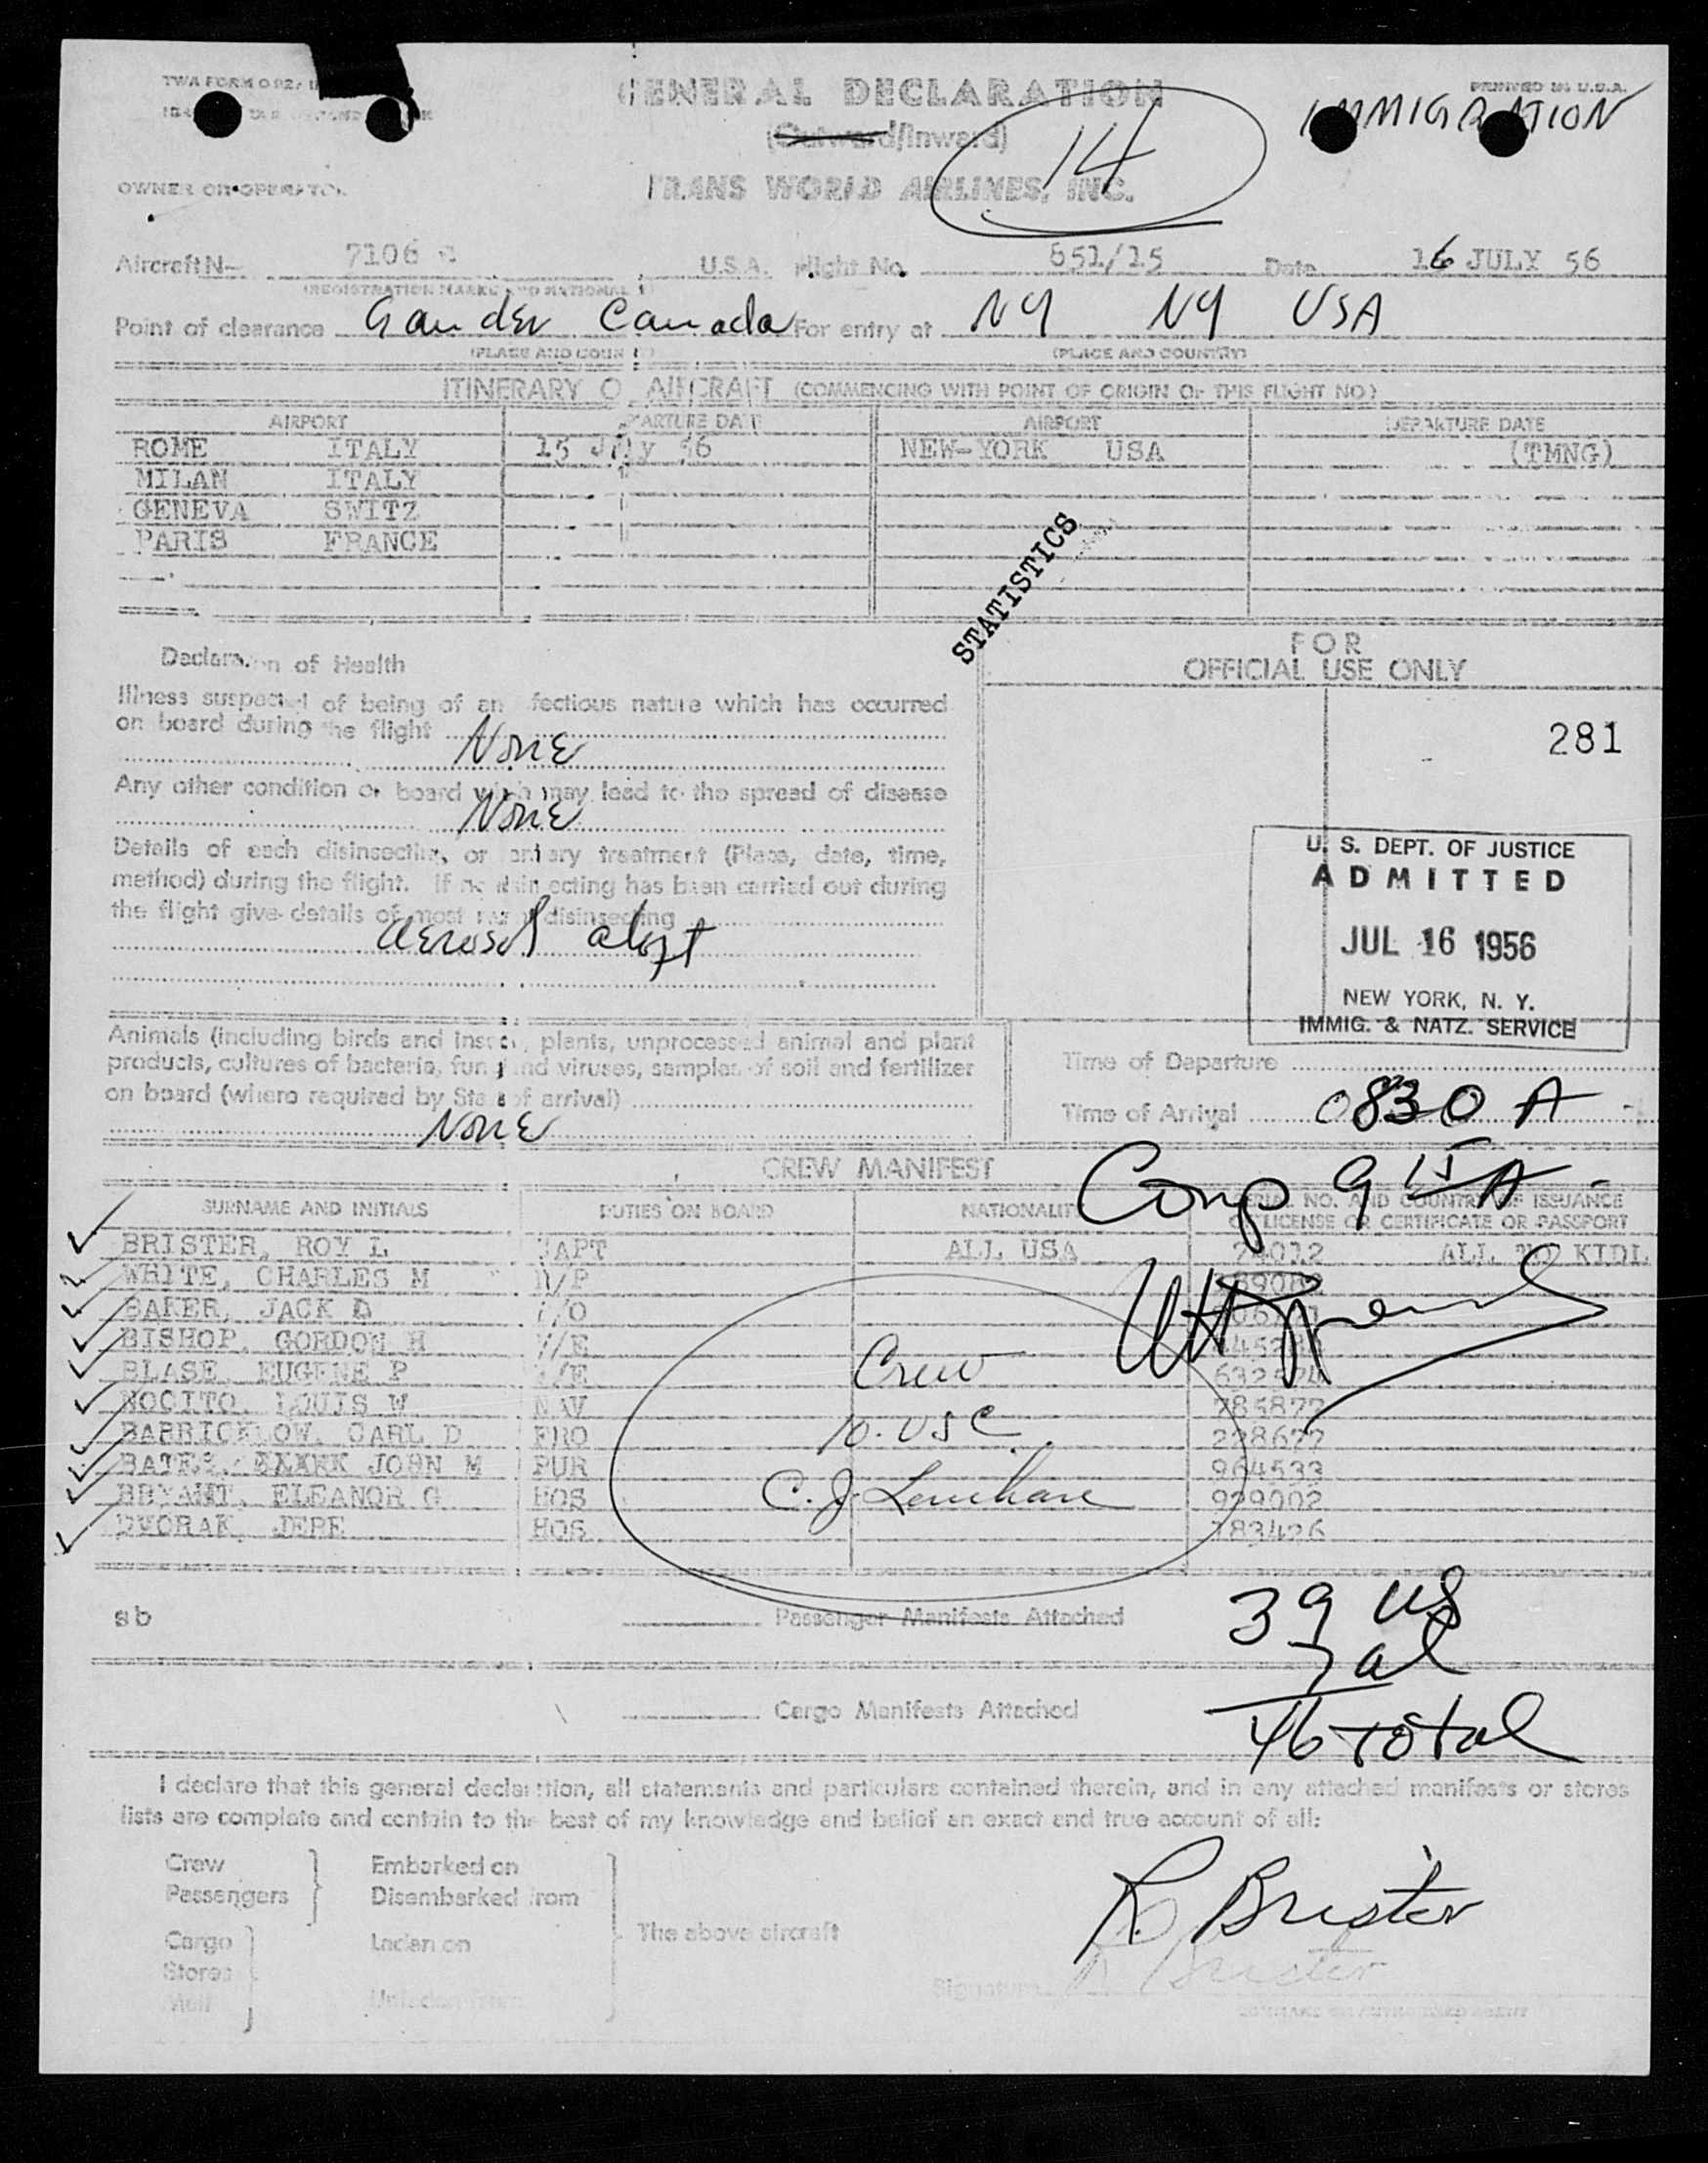 TWA FORM O 92
PRINTED IN U.S.A.
GENERAL DECLARATION
IMMIGRATION
(Outward/Inward)
14
OWNER OR OPERATOR
TRANS WORLD AIRLINES, INC.
Aircraft N- 7106 U.S.A. Flight No. 851/15 Date 16 JULY 56
(REGISTRATION MARKS AND NATIONALITY)
Point of clearance Gander Canada For entry at NY NY USA
(PLACE AND COUNTRY) (PLACE AND COUNTRY)
ITINERARY OF AIRCRAFT (COMMENCING WITH POINT OF ORIGIN OF THIS FLIGHT NO.)
AIRPORT DEPARTURE DATE AIRPORT DEPARTURE DATE
ROME ITALY 15 July 56 NEW-YORK USA (TMNG)
MILAN ITALY
GENEVA SWITZ
PARIS FRANCE
STATISTICS
Declaration of Health
FOR
OFFICIAL USE ONLY
Illness suspected of being of an infectious nature which has occurred
on board during the flight
None
281
Any other condition on board which may lead to the spread of disease
None
Details of each disinsecting or sanitary treatment (Place, date, time,
method) during the flight. If no disinsecting has been carried out during
the flight give details of most recent disinsecting
aerosol aloft
U. S. DEPT. OF JUSTICE
ADMITTED
JUL 16 1956
NEW YORK, N. Y.
IMMIG. & NATZ. SERVICE
Animals (including birds and insects), plants, unprocessed animal and plant
products, cultures of bacteria, fungi and viruses, samples of soil and fertilizer
on board (where required by State of arrival)
None
Time of Departure
Time of Arrival 0830 A
Comp 9 15 A
CREW MANIFEST
SURNAME AND INITIALS DUTIES ON BOARD NATIONALITY SERIAL NO. AND COUNTRY OF ISSUANCE
OF LICENSE OR CERTIFICATE OR PASSPORT
BRISTER, ROY L CAPT ALL USA ALL
WHITE, CHARLES M
BAKER, JACK D F/O
BISHOP, GORDON H F/E
BLASE, EUGENE P F/E
NOCITO, LOUIS W NAV
BARRICKLOW, CARL D PRO 228677
BATES, JOHN M PUR 964533
BRYANT, ELEANOR G HOS 929002
DVORAK, JERE HOS 783426
Crew
10 USC
C. J. Lenihan
sb
Passenger Manifests Attached
39 US
7 al
46 total
Cargo Manifests Attached
I declare that this general declaration, all statements and particulars contained therein, and in any attached manifests or stores
lists are complete and contain to the best of my knowledge and belief an exact and true account of all:
Crew
Passengers
Embarked on
Disembarked from
Cargo
Stores
Mail
Laden on
Unladen from
The above aircraft
R. Brister
Signature R Brister